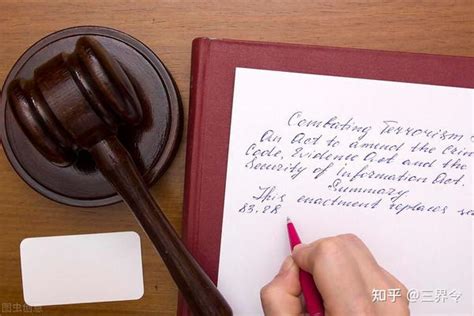 Combating Terrorism
An Act to amend the Crim
Code, Evidence Act and the
Security of Information Act.
Summary
This enactment replaces se
83.28
图虫创意
知乎 @三界令